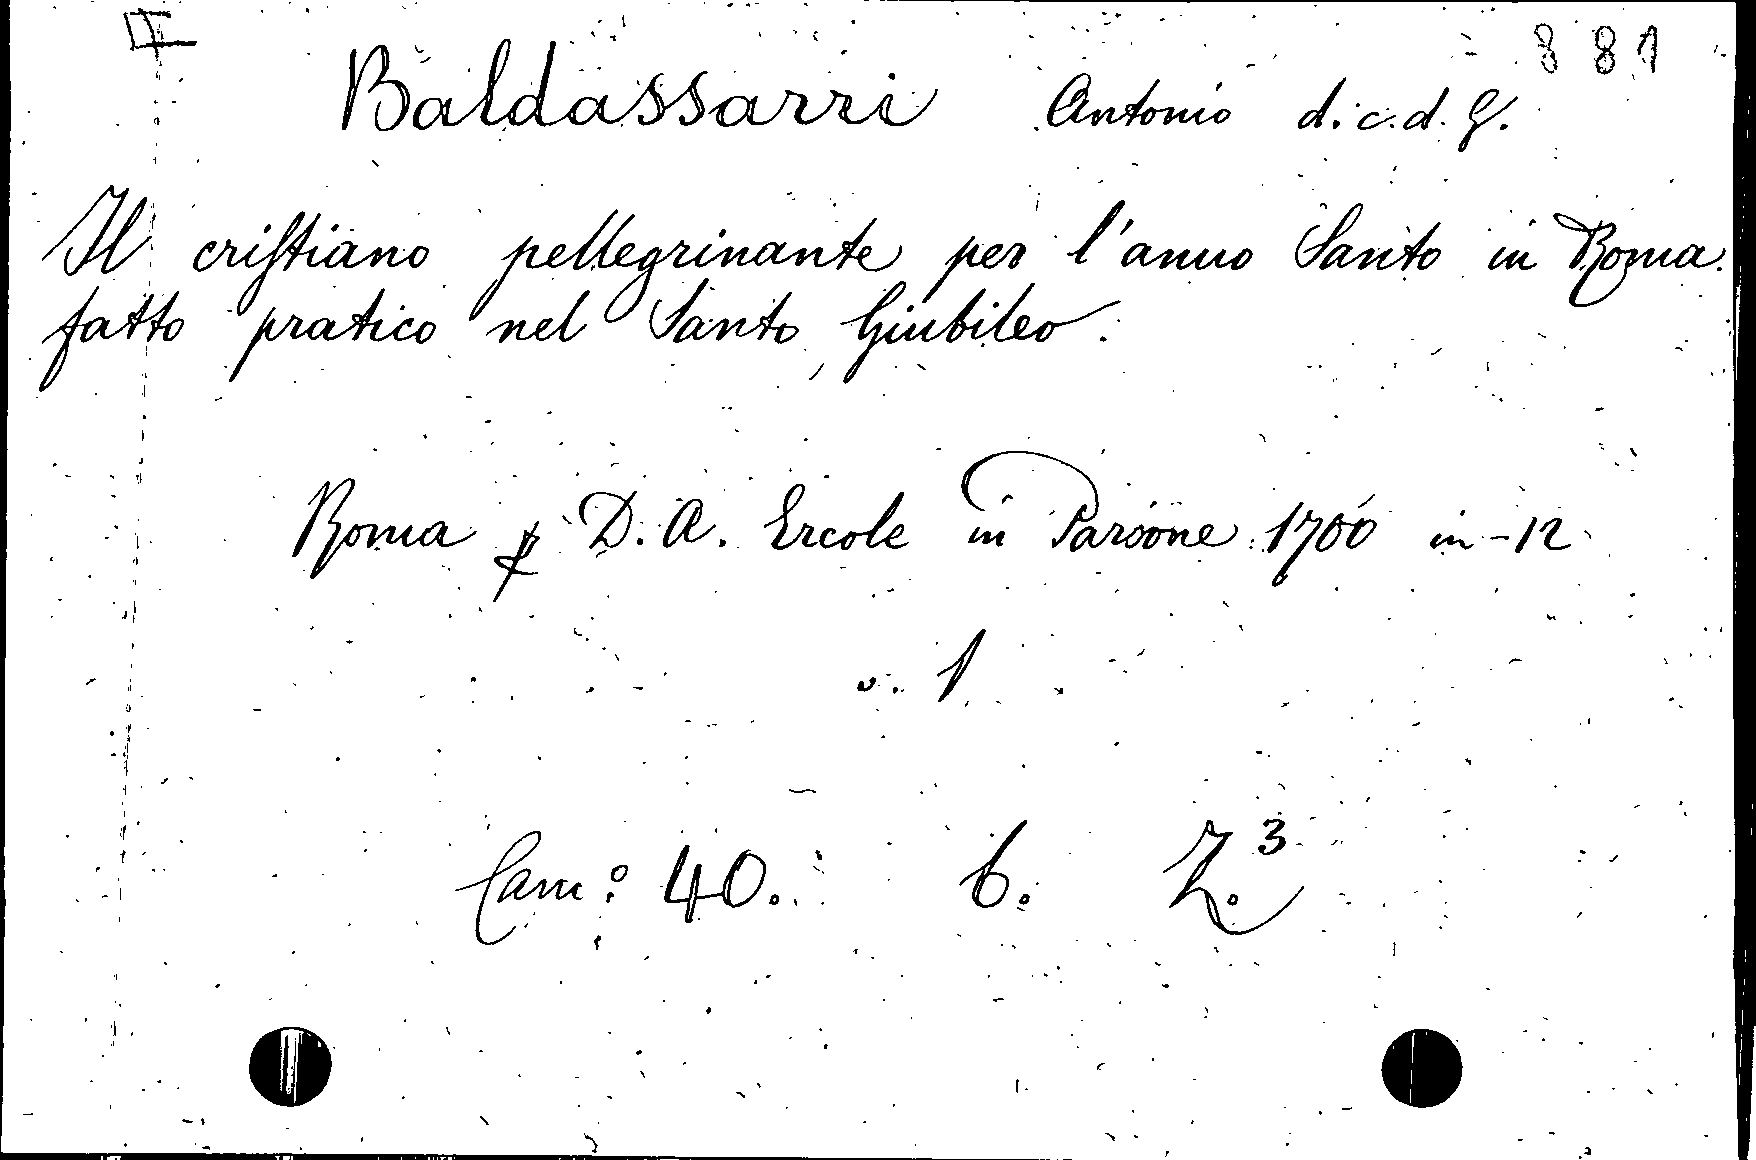 881
Baldassarri Antonio d. c. d. G.
Il cristiano pellegrinante per l'anno Santo in Roma.
fatto pratico nel Santo Giubileo.
Roma p D. A. Ercole in Parione 1700 in-12
v. 1
Cam: 40. b. Z.3